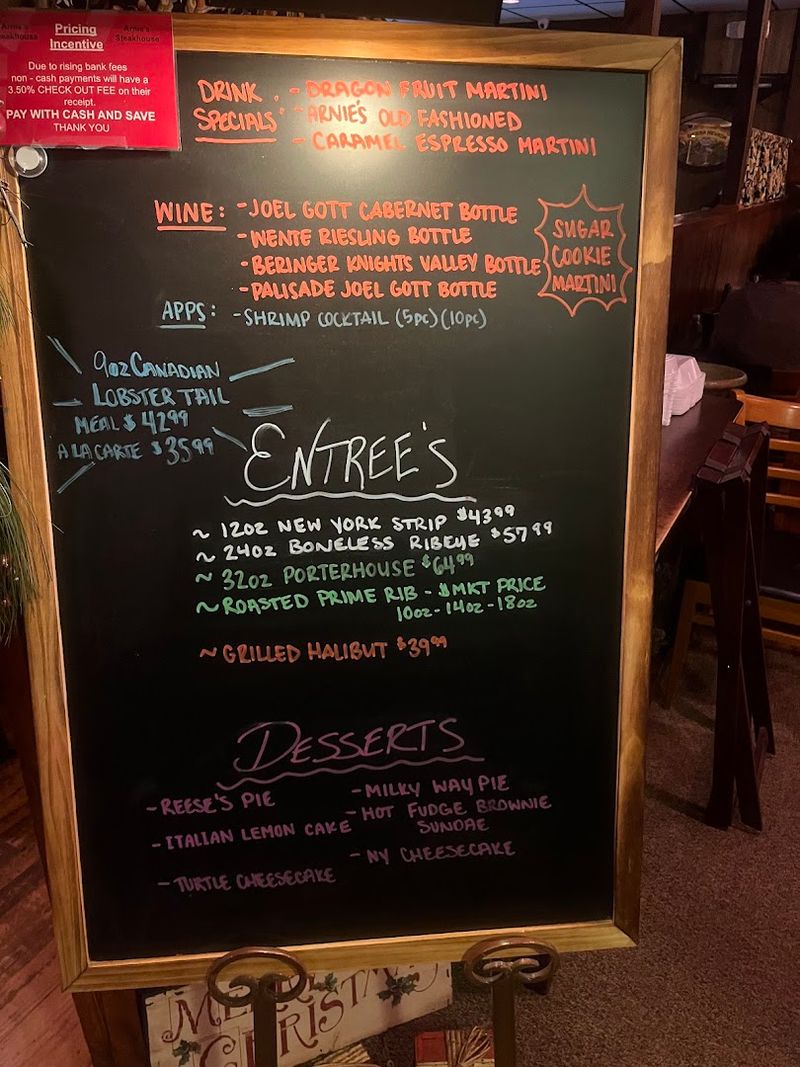 Arnie's
Steakhouse
Pricing
Incentive
Arnie's
Steakhouse
Due to rising bank fees
non - cash payments will have a
3.50% CHECK OUT FEE on their
receipt.
PAY WITH CASH AND SAVE
THANK YOU
DRINK SPECIALS: - DRAGON FRUIT MARTINI
- ARNIE'S OLD FASHIONED
- CARAMEL ESPRESSO MARTINI
WINE: - JOEL GOTT CABERNET BOTTLE
- WENTE RIESLING BOTTLE
- BERINGER KNIGHTS VALLEY BOTTLE
- PALISADE JOEL GOTT BOTTLE
SUGAR
COOKIE
MARTINI
APPS: - SHRIMP COCKTAIL (5pc) (10pc)
9oz CANADIAN
LOBSTER TAIL
MEAL $42.99
A LA CARTE $35.99
ENTREE'S
~ 12oz NEW YORK STRIP $43.99
~ 24oz BONELESS RIBEYE $57.99
~ 32oz PORTERHOUSE $64.99
~ ROASTED PRIME RIB - $MKT PRICE
10oz - 14oz - 18oz
~ GRILLED HALIBUT $39.99
DESSERTS
- REESE'S PIE
- ITALIAN LEMON CAKE
- TURTLE CHEESECAKE
- MILKY WAY PIE
- HOT FUDGE BROWNIE
SUNDAE
- NY CHEESECAKE
MERRY
CHRISTMAS